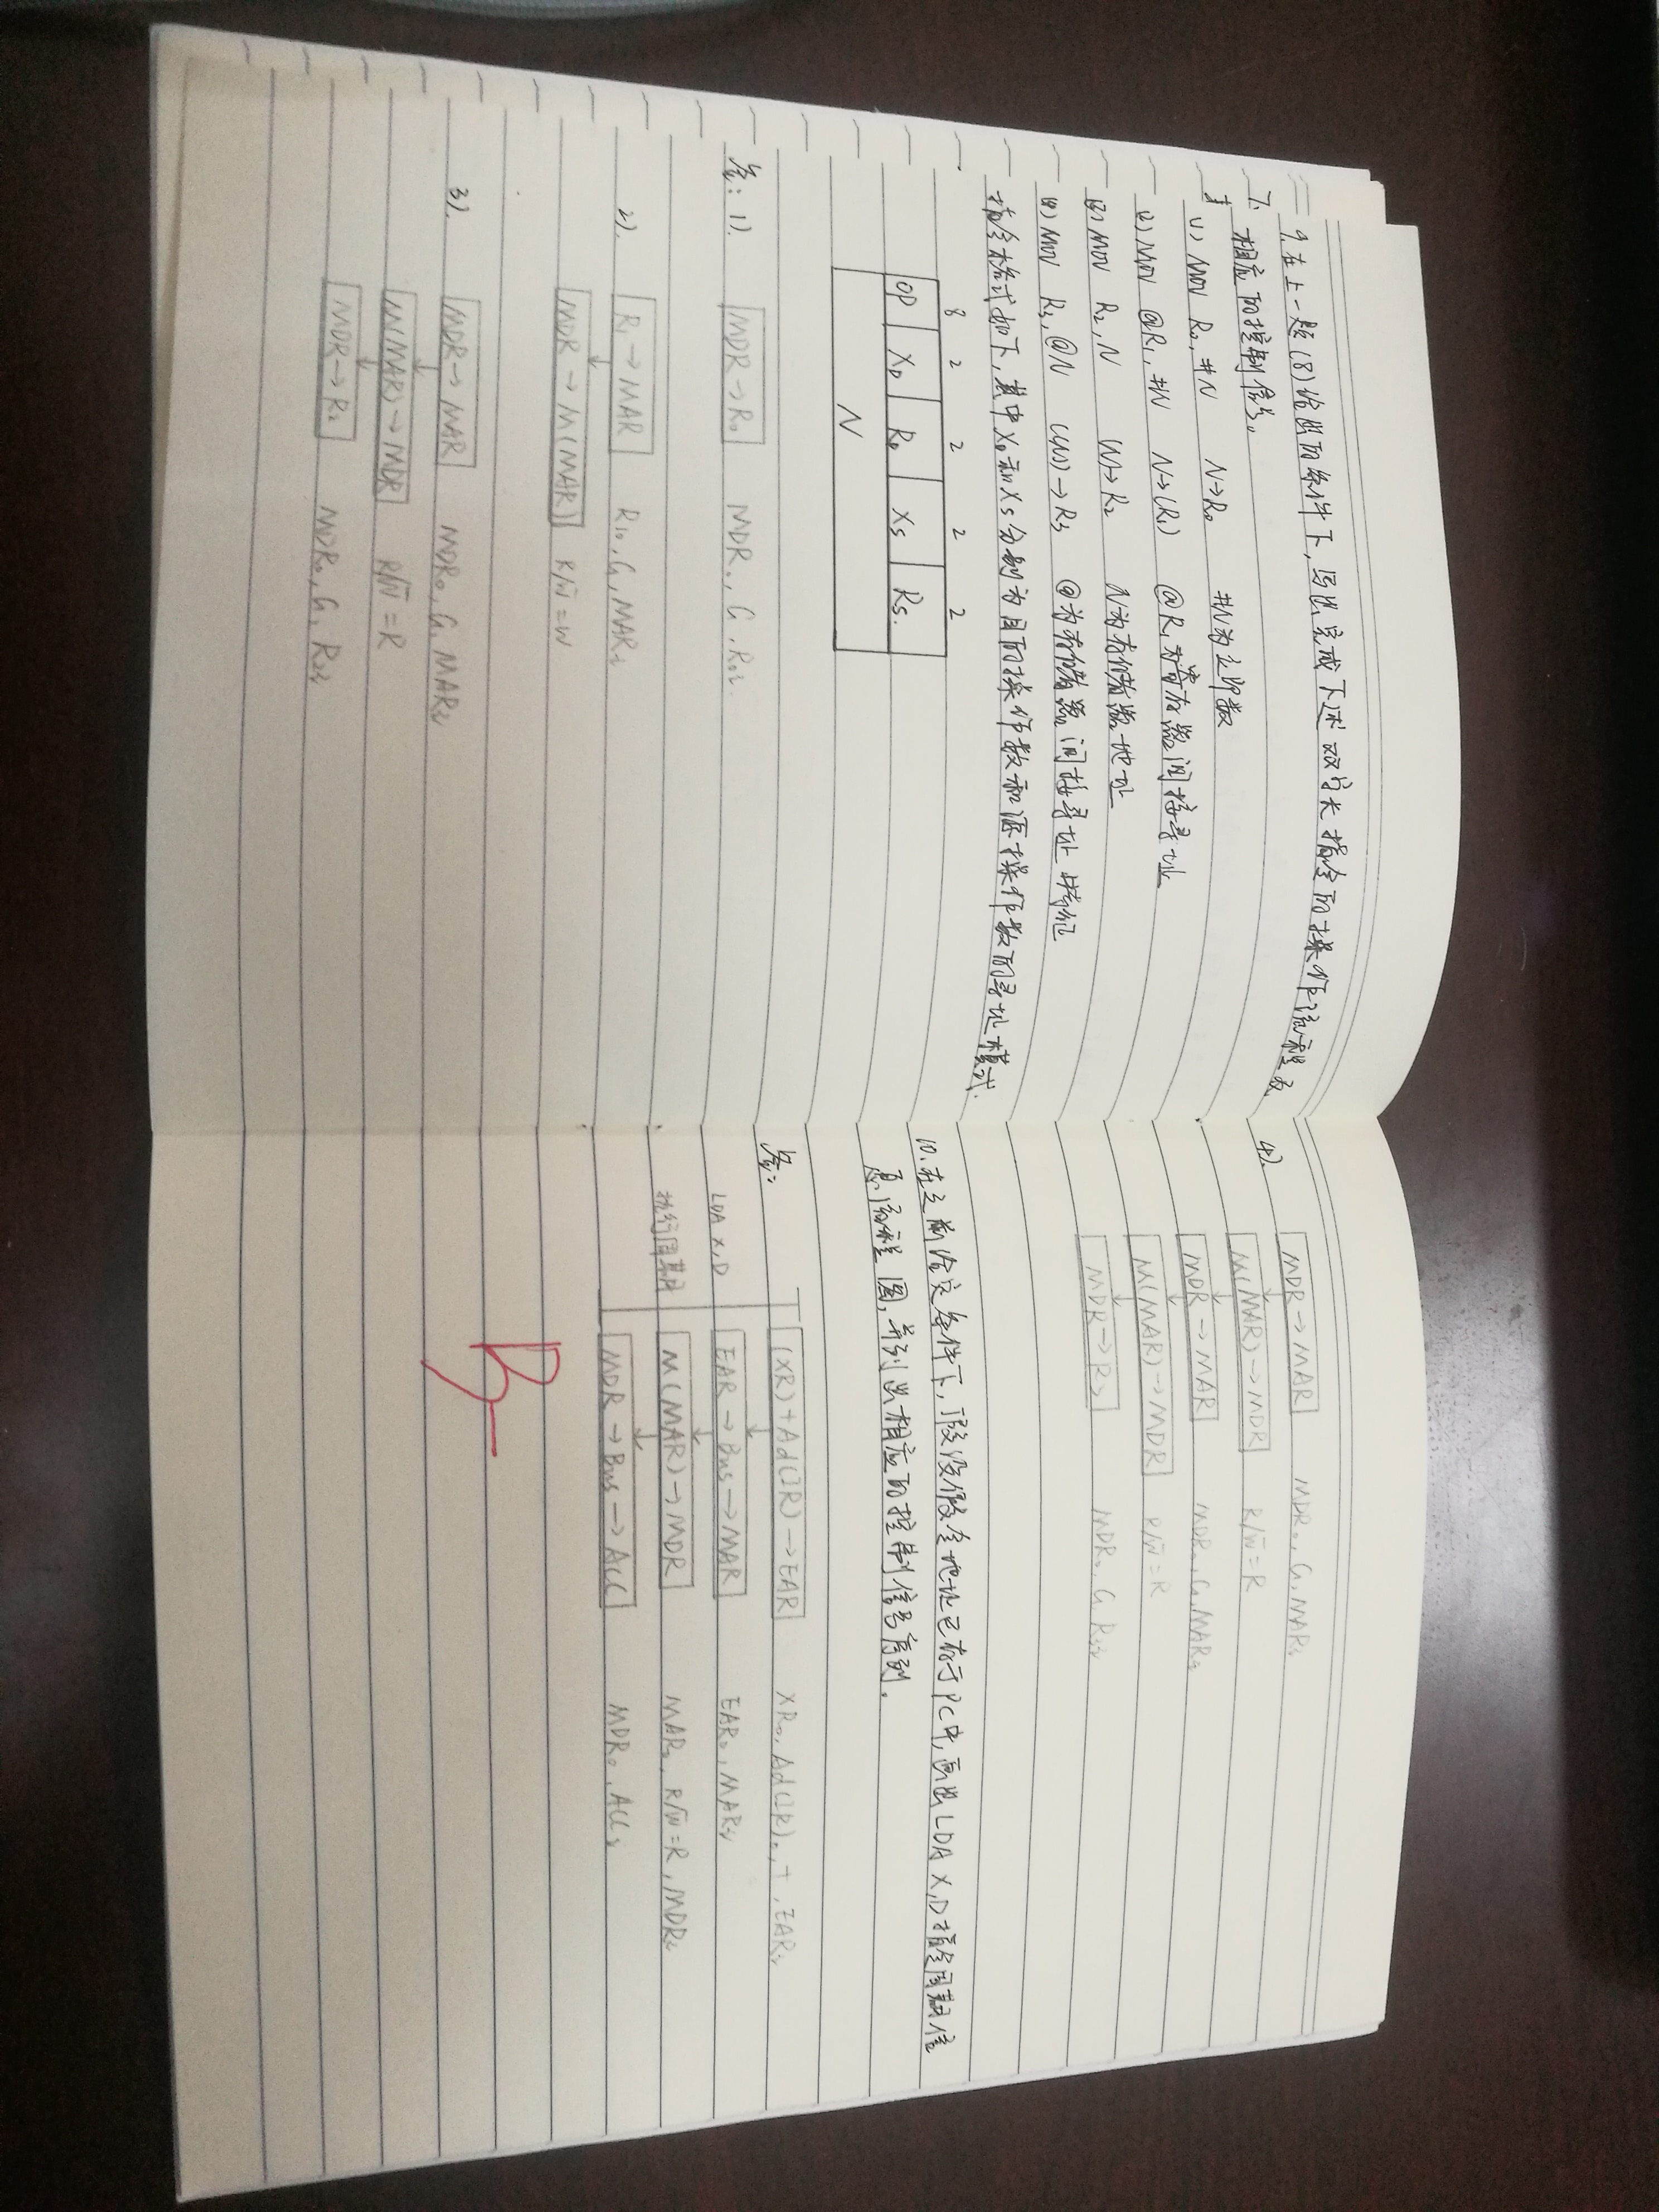 9. 在上一题(8)给出的条件下,写出完成下述双字长指令的操作流程及
7. 相应的控制信号。
(1) MOV R₀, #N N→R₀ #N为立即数
(2) MOV @R₁, #N N→(R₁) @R₁为寄存器间接寻址
(3) MOV R₂, N (N)→R₂ N为存储器地址
(4) MOV R₃, @N ((N))→R₃ @为存储器间接寻址特征
指令格式如下,其中X_D和X_S分别为目的操作数和源操作数的寻址模式.
8 2 2 2 2
OP X_D R_D X_S R_S.
N
答: 1). MDR→R₀ MDR₀, G, R₀ᵢ.
2). R₁→MAR R₁₀, G, MARᵢ
MDR→M(MAR) R/W̅=W
3). MDR→MAR MDR₀, G, MARᵢ
M(MAR)→MDR R/W̅=R
MDR→R₂ MDR₀, G, R₂ᵢ
4). MDR→MAR MDR₀, G, MARᵢ
M(MAR)→MDR R/W̅=R
MDR→MAR MDR₀, G, MARᵢ
M(MAR)→MDR R/W̅=R
MDR→R₃ MDR₀, G, R₃ᵢ
10. 在之前给定条件下,假设假令地址已存于PC中,画出LDA X,D指令周期信
息流程图,并列出相应的控制信号序列.
答:
(XR)+Ad(IR)→EAR XR₀, Ad(IR)₀, +, EARᵢ
LDA X,D EAR→Bus→MAR EAR₀, MARᵢ
执行周期 M(MAR)→MDR MAR₀, R/W̅=R, MDRᵢ
MDR→Bus→ACC MDR₀, ACCᵢ
B